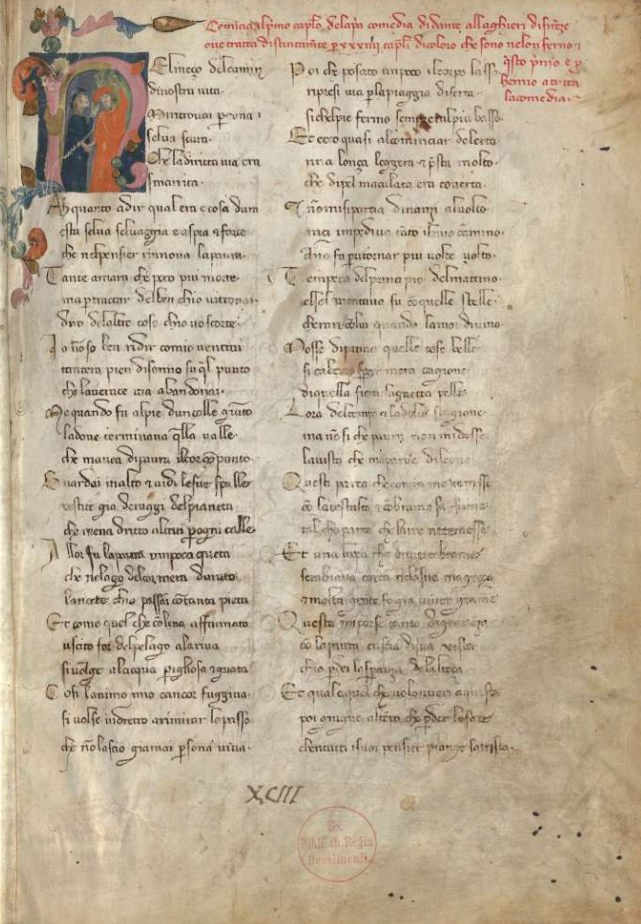 Comincia il primo capitolo dela prima comedia di dante allaghieri di firenze
one tratta distintamente per xxxiiii capitoli di coloro che sono nelon ferno e
questo primo e
tutta
la comedia.
Nel meço del camin
di nostra vita
Mi ritrovai per una
selva scura.
Che la diricta via era
smarrita.
Ah quanto a dir qual era e cosa dura
esta selva selvaggia e aspra e forte
che nel pensier rinnova la paura.
Tante amara che poco piu morte
ma per trattar del ben chio vi trovai.
diro delaltre cose chio vo scorte.
Io nõ so ben ridir comio ventrai
tantera pien di sonno su quel punto
che la verace via abandonai.
Ma quando fu al pie dun colle giunto
la dove terminava quella valle
che mavea di paura il cor compunto
Guardai in alto e vidi le sue spalle
vestite gia de raggi del pianeta
che mena dritto altrui per ogni calle
Allor fu la paura un poco queta
che nel lago del cor mera durata
la nocte chio passai cõ tanta pieta
Et come quel che cõ lena affannata
uscito for del pelago ala riva
si volge alacqua perigliosa e guata
Cosi lanimo mio cancor fuggiva
si volse indretto a rimirar lo passo
che nõ lascio giamai persona viva.
Poi che posato un poco il corpo lasso
ripresi via per la piaggia diserta
si chel pie fermo sempre el piu basso.
Et ecco quasi al cominciar delerta
una lonça leggera e presta molto.
che di pel maculata era coverta.
E nõ mi si partia dinanzi al volto
anci impediva tãto il mio camino.
chio fu per ritornar piu volte volto.
Tempera del principio del mattino
el sol montava su cõ quelle stelle
cheran cõ lui quando lamor divino
Mosse di prima quelle cose belle
si cha bene sperar mera cagione
di quella fiera la gaetta pelle
Lora del tempo e la dolce stagione
ma nõ si che paura non mi desse
la vista che maparve dun leone
Questi parea che contra me venisse
cõ la test alta e cõ rabiosa fame
si che parea che laere ne temesse
Et una lupa che di tutte brame
sembiava carca ne la sua magreça
e molte gente fe gia viver grame
Questa mi porse tanto di graveça
cõ la paura cuscia di sua vista
chio perdei la sperança de lalteça
Et quale quei che volontieri aquista
poi giugne il tempo che perder lo face
che n tutti i suoi pensier piange e sattrista.
XCIII
Ex
Biblioth. Regia
Berolinensi.